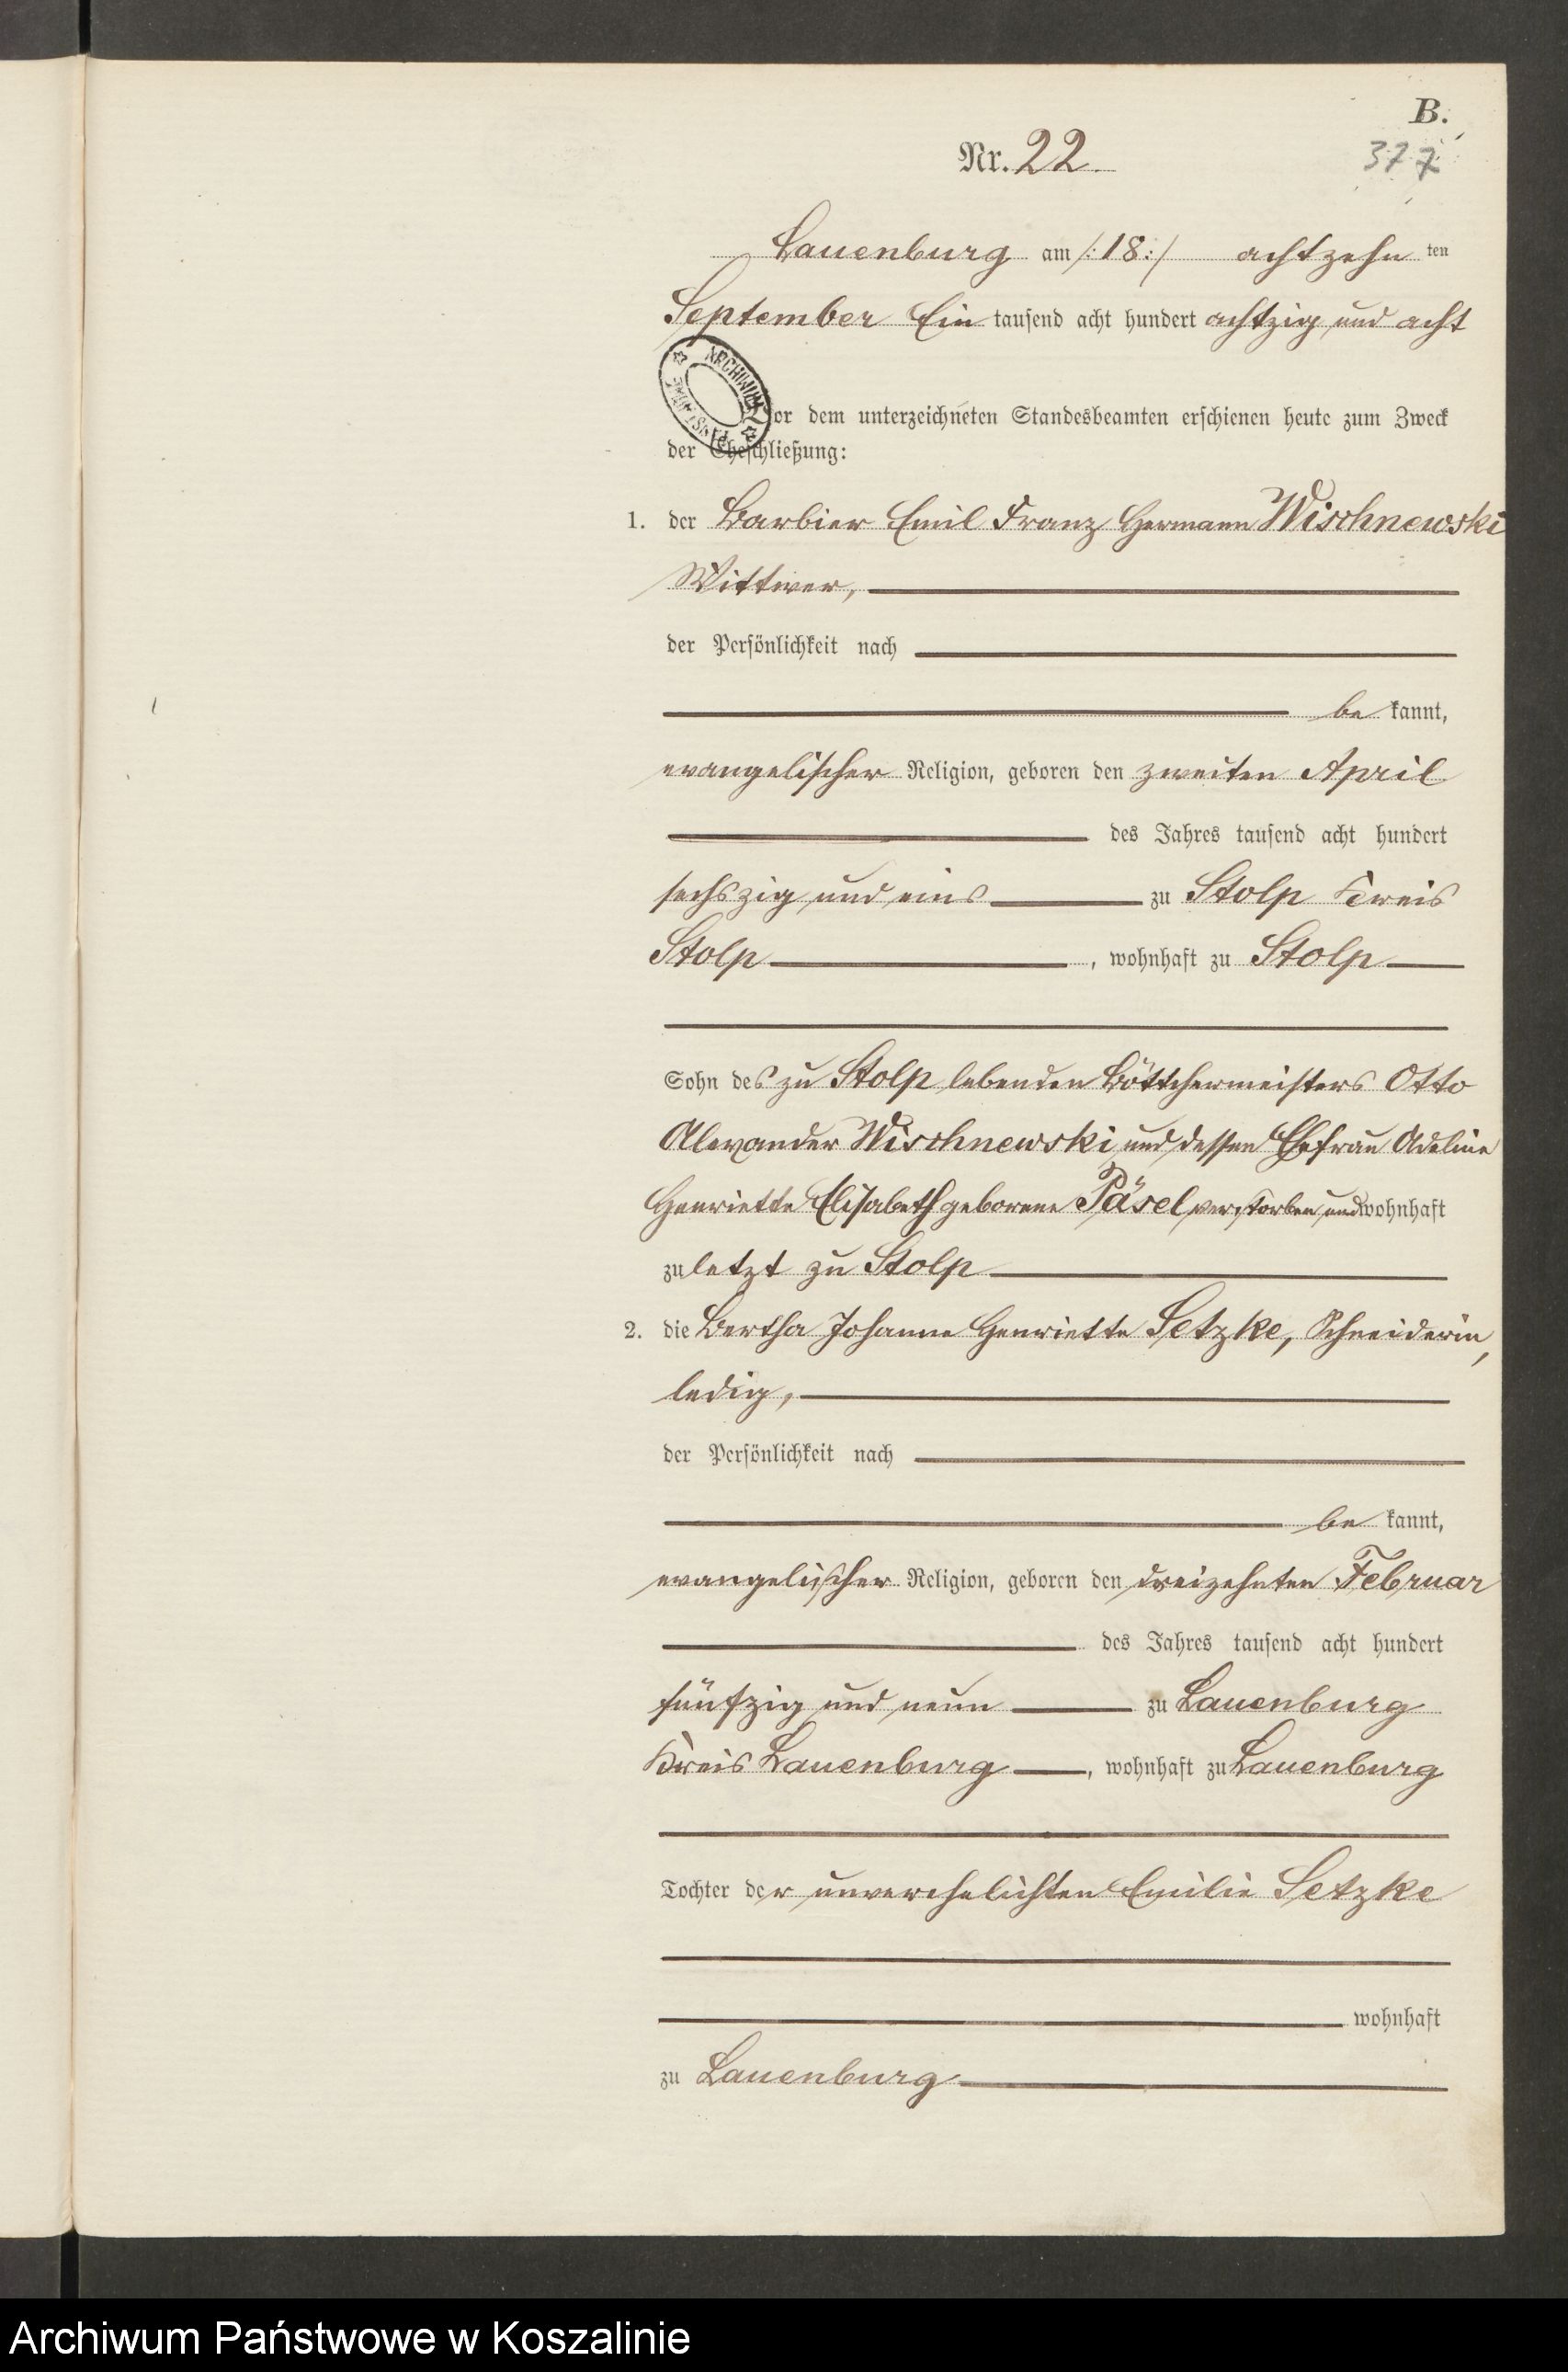 B.
Nr. 22.
377
Lauenburg am /:18:/ achtzehn ten
September Ein tausend acht hundert achtzig und acht
ARCHIWUM PAŃSTWOWE
Vor dem unterzeichneten Standesbeamten erschienen heute zum Zweck
der Eheschließung:
1. der Barbier Emil Franz Hermann Wischnewski
Wittwer,
der Persönlichkeit nach
be kannt,
evangelischer Religion, geboren den zweiten April
des Jahres tausend acht hundert
sechszig und eins zu Stolp Kreis
Stolp, wohnhaft zu Stolp
Sohn des zu Stolp lebenden Böttchermeisters Otto
Alexander Wischnewski und dessen Ehefrau Adeline
Henriette Elisabeth geborene Päsel verstorben und wohnhaft
zuletzt zu Stolp
2. die Bertha Johanna Henriette Setzke, Schneiderin,
ledig,
der Persönlichkeit nach
be kannt,
evangelischer Religion, geboren den dreizehnten Februar
des Jahres tausend acht hundert
fünfzig und neun zu Lauenburg
Kreis Lauenburg, wohnhaft zu Lauenburg
Tochter der unverehelichten Emilie Setzke
wohnhaft
zu Lauenburg
Archiwum Państwowe w Koszalinie